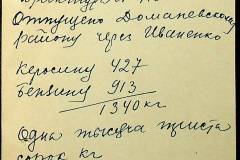 Отпущено Доманевскому
району через Иваненко
Керосину 427
Бензину 913
1340 кг
Одна тысяча триста
сорок кг